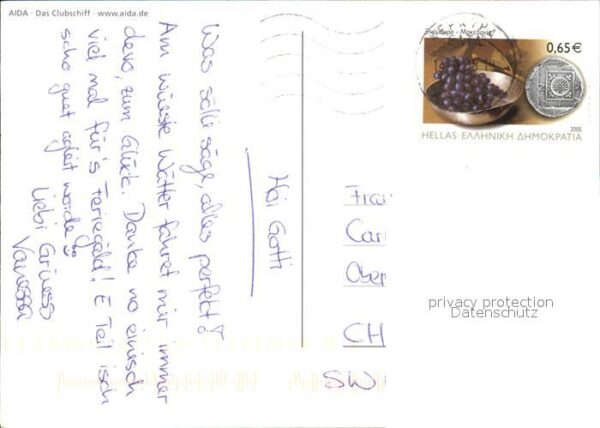 AIDA · Das Clubschiff · www.aida.de
Hoi Gotti
Was sölli säge, alles perfekt!
Am wüeste Wätter fahret mir immer
devo, zum Glück. Danke no einisch
viel mal für's Feriegeld! E Teil isch
scho guet agleit worde
Liebi Grüess
Vanessa
Μακεδονία
0,65€
2005
HELLAS ΕΛΛΗΝΙΚΗ ΔΗΜΟΚΡΑΤΙΑ
Frau
Car
Ober
CH
SW
privacy protection
Datenschutz